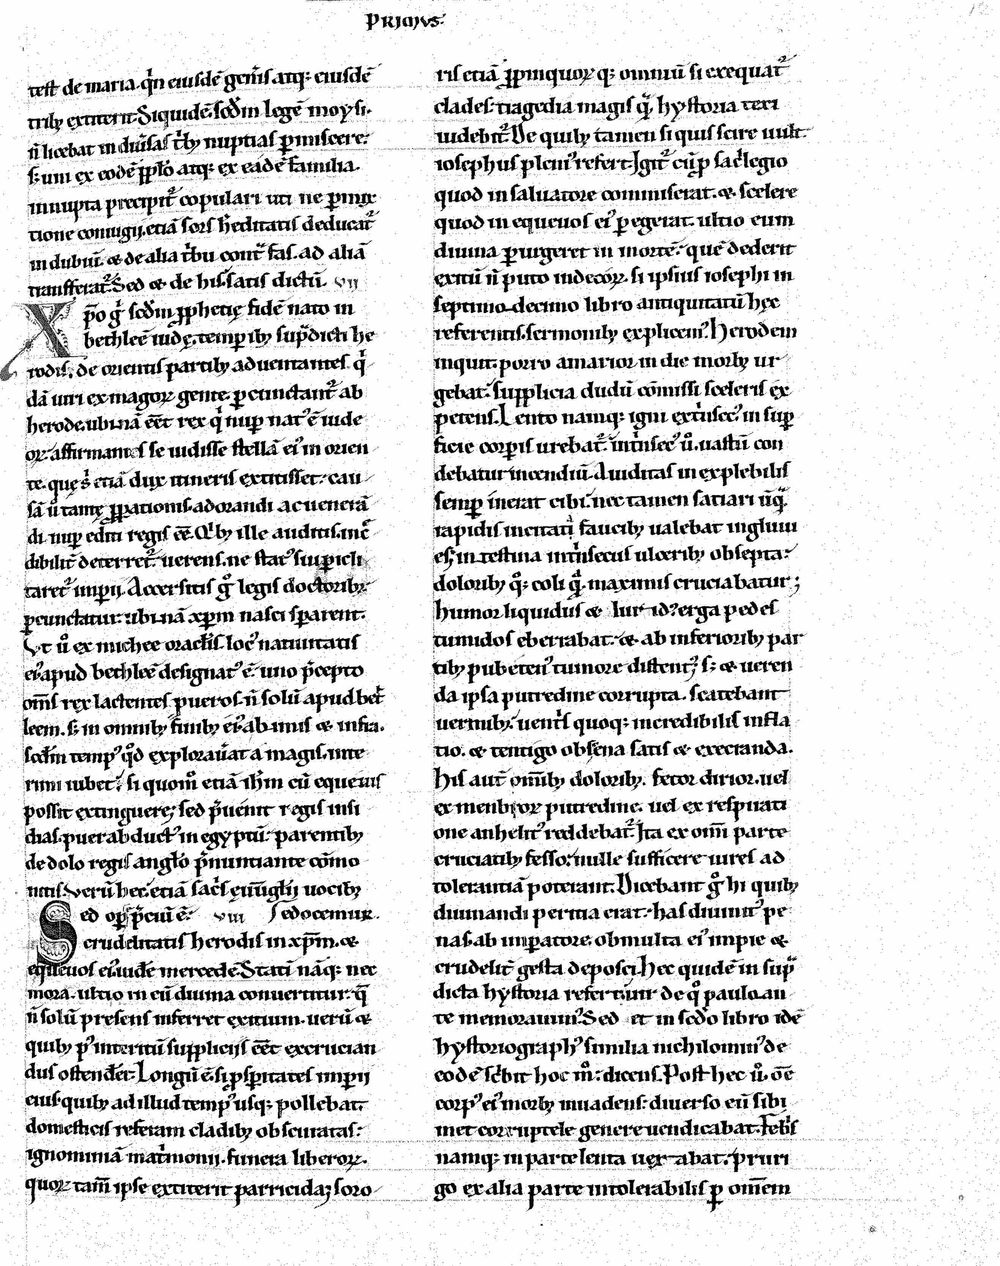 PRIMVS.
test de maria. qn̄ eiusdē gen̄is atq; eiusdē
trib; extiterit. Siquidē scđm legē moysi.
n̄ licebat in diu̓sas t̓b; nuptias ꝑmiscere.
s; uni ex eodē ꝓplo atq; ex eadē familia.
innupta precipit̓ copulari uti ne ꝑmix
tione coniugij. etiā sors h̓editatis deducat̓
in dubiū. & de alia t̓bu cont̓ fas. ad aliā
transferat̓. Sed & de his satis dictū. VII
Xp̄o g̓ scđm ꝓphetię fidē nato in
bethleē iudę. temporib; sup̄dicti he
rodis. de orientis partib; aduentantes q̓
dā uiri ex magoꝝ gente. ꝑcunctant̓ ab
herode. ubi nā eēt rex q̓ nuꝑ nat̓ ē iude
oꝝ. affirmantes se uidisse stellā ei̓ in orien
te. quę s̓ etiā dux itineris extitisset. cau
sā u̓ tantę ꝓꝑationis. adorandi ac uenerā
di nuꝑ editi regis eē. Quib; ille auditis. inc̄
dibilit̓ deterret̓. uerens. ne stat̓ sui ꝑicli
taret̓ imꝑij. Accersitis g̓ legis doctorib;
ꝑcunctatur. ubi nā xp̄m nasci sꝑarent.
Vt u̓ ex michee oraclis. loc̓ natiuitatis
ei̓ apud bethleē designat̓ ē. uno p̄cepto
om̄s rex lactentes pueros. n̄ solū apud bet
leem. s; in omnib; finib; ei̓. ab imis & infra.
scđm temp̓ qđ explorauat a magis. inte
rimi iubet. si quom̄ etiā ih̄m cū equeuis
possit extinguere; sed p̄uenit regis insi
dias. puer abduct̓ in egyptū. parentib;
de dolo regis anglo p̄nuntiante cōmo
nitis. Verū hec etiā sac̓s eu̓uglij uocib;
Sed oꝑ p̄ciū ē. VIII sedocemur.
crudelitatis herodis in xp̄m. &
equeuos ei̓. uidē mercede. Stati nāq; nec
mora. ultio in eū diuina conuertitur. q̄
n̄ solū presens inferret exitium. uerū &
quib; p̓ interitū suppliciis eēt excrucian
dus ostenderet. Longū ē si ꝓsꝑitates imꝑij
eius. quib; ad illud temp̓ usq; pollebat.
domesticis referam cladib; obscuratas.
ignominiā mat̓monij. funera liberoꝝ.
quoꝝ tam̄ ipse extiterit parricida; soro
ris etiā ꝓpinquoꝝ q; omniū si exequat̓
clades. tragedia magis q̄ hystoria texi
uidebit̓. De quib; tamen si quis scire uult.
iosephus pleni̓ refert. Igit̓ cū ꝑ sac̓legio
quod in saluatore commiserat. & scelere
quod in equeuos ei̓ ꝑegerat. ultio eum
diuina ꝑurgeret in mortē. quē dederit
exitū n̄ puto indecoꝝ. si ipsius iosephi in
septimo decimo libro antiquitatū hec
referentis. sermonib; explicem. Herodem
inquit. porro amarior in die morb; ur
gebat. supplicia dudū cōmissi sceleris ex
petens. Lento namq; igni ext̓nsec̓ in suꝑ
ficie corꝑis urebat̓. int̓nsec̓ u̓. uastū con
debatur incendiū. Auiditas inexplebilis
semꝑ inerat cibi. nec tamen satiari ūq̄
rapidis incitati faucib; ualebat ingluui
es. intestina int̓nsecus ulcerib; obsepta.
dolorib; q̓; coli q̄ maximis cruciabatur;
humor liquidus & luridus erga pedes
tumidos eberiabat. & ab inferiorib; par
tib; pubeten̓ tumore distent̓; s; & ueren
da ipsa putredine corrupta. scatebant
uermib;. uent̓s quoq; incredibilis infla
tio. & tentigo obscena satis & execranda.
His aut̄ om̄ib; dolorib;. fetor dirior. uel
ex menbroꝝ putredine. uel ex respirati
one anhelit̓ reddebat̓. Ita ex om̄i parte
cruciatib; fesso. nulle sufficere uires ad
tolerantiā poterant. Dicebant g̓ hi quib;
diuinandi peritia erat. has diuinit̓ pe
nas. ab imꝑatore. ob multa ei̓ impie &
crudelit̓ gesta deposci. Hec quidē in sup̄
dicta hystoria refertur de q̓ paulo an
te memorauim̓. Sed et in scđo libro idē
hystoriograph̓ similia nichilomin̓ de
eodē sc̓bit hoc m̊. dicens. Post hec u̓. oē
corp̓ ei̓ morb; inuadens. diuerso eū sibi
met corruptele genere uendicabat. Feb̓s
namq; in parte lenta uexabat. pruri
go ex alia parte intolerabilis ꝑ om̄em